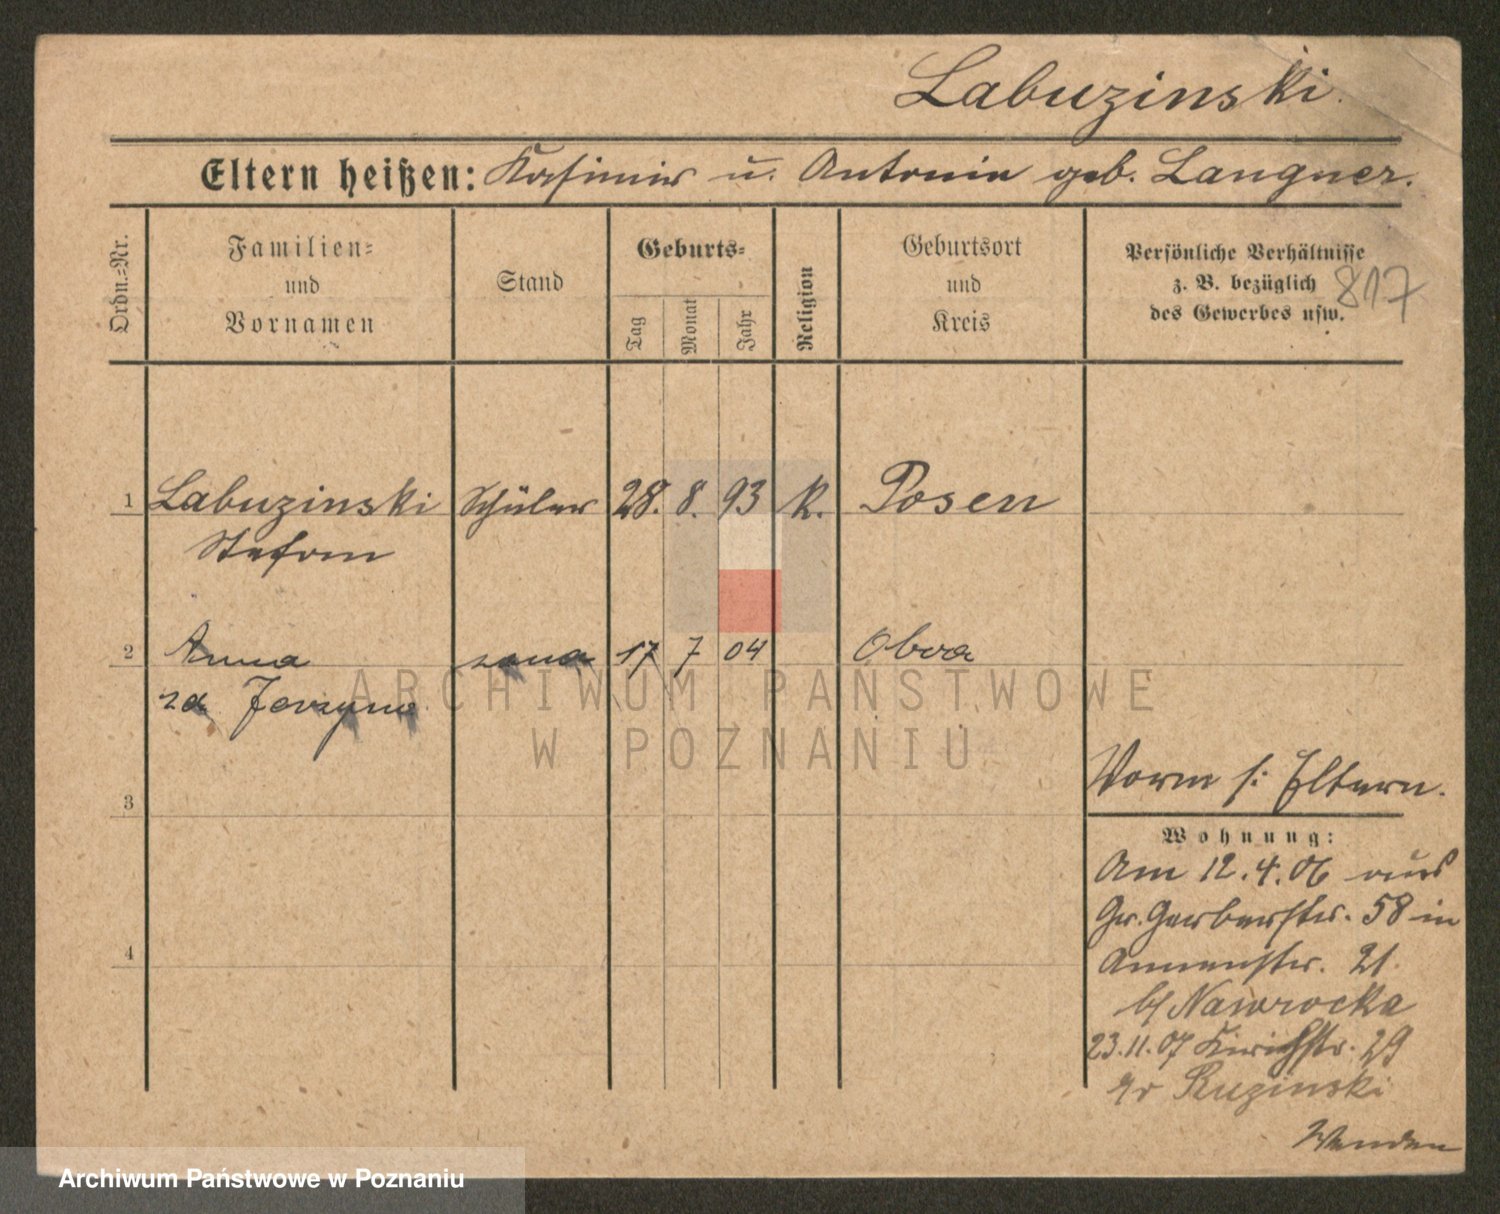 Labuzinski.
Eltern heißen: Kasimir u. Antonin geb. Langner.
Ordn.-Nr.
Familien- und Vornamen
Stand
Geburts-
Tag
Monat
Jahr
Religion
Geburtsort und Kreis
Persönliche Verhältnisse
z. B. bezüglich
des Gewerbes usw.
817
1 Labuzinski Schüler 28. 8. 93 k. Posen
Stefan
2 Anna żona 17 7 04 Obra
za Jerzyna
ARCHIWUM PAŃSTWOWE
W POZNANIU
3
4
Vorm s: Eltern.
Wohnung:
Am 12.4.06 aus
Gr. Gerberstr. 58 in
Annenstr. 21.
b/ Nawrocka
23.11.07 29
Ruzinski
Wenden
Archiwum Państwowe w Poznaniu